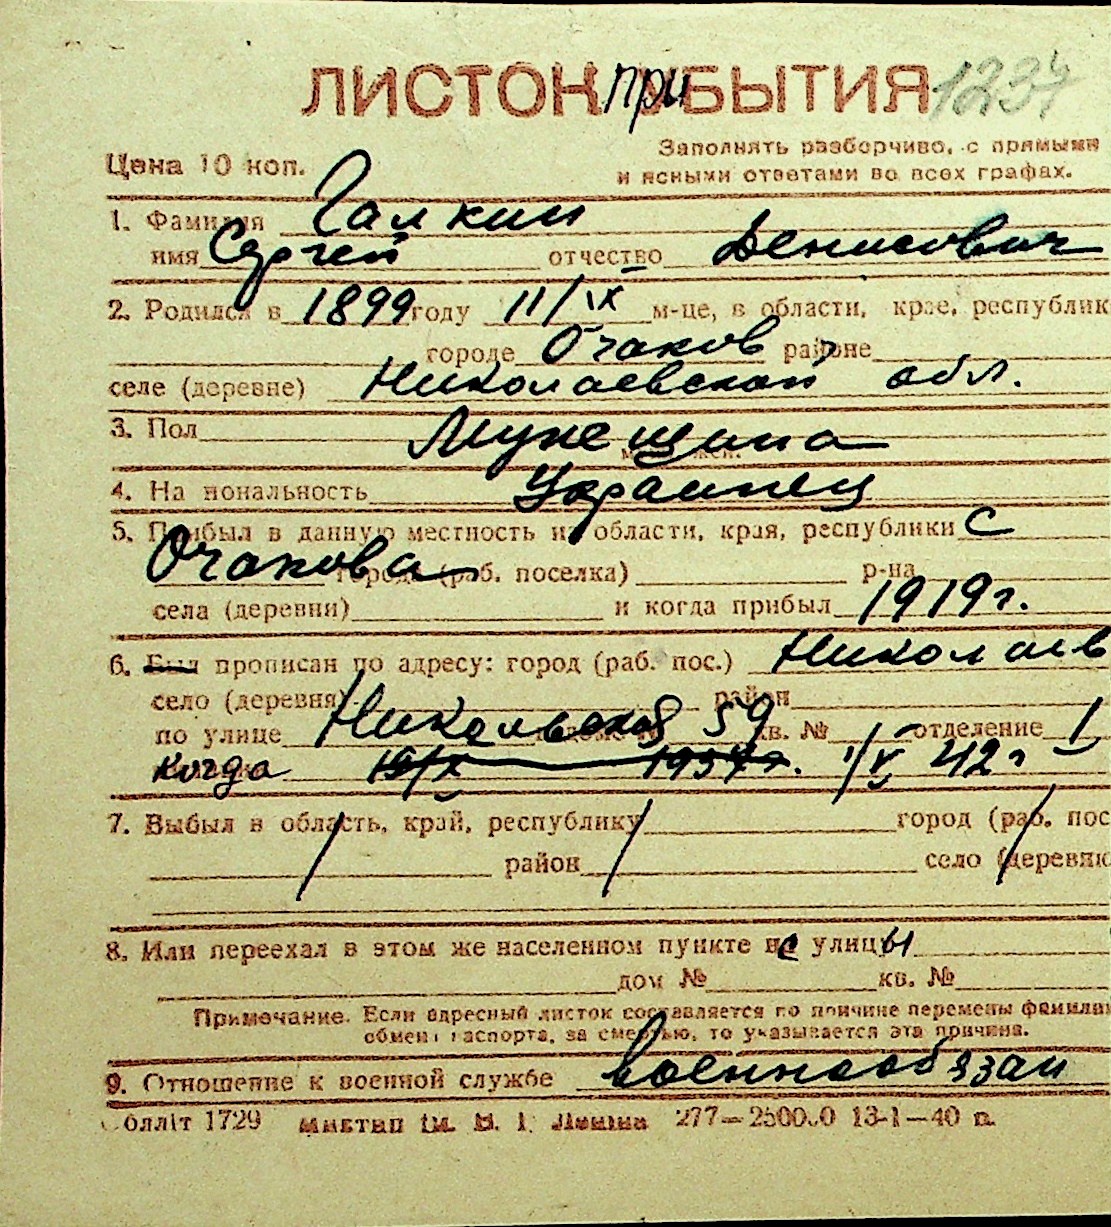 ЛИСТОК прибытия 1234
Цена 10 коп.
Заполнять разборчиво, с прямыми
и ясными ответами во всех графах.
1. Фамилия Галкин
имя Сергей отчество Денисович
2. Родился в 1899 году 11/IX м-це, в области, крае, республик
городе Очаков районе
селе (деревне) Николаевской обл.
3. Пол Мужещина
4. Национальность Украинец
5. Прибыл в данную местность из области, края, республики с
Очакова города (раб. поселка) р-на
села (деревни) и когда прибыл 1919 г.
6. Был прописан по адресу: город (раб. пос.) Николаев
село (деревня) район
по улице Никольская 59 кв. № отделение 1
Когда 19/X 1934 г. 1/V 42 г
7. Выбыл в область, край, республику город (раб. пос
район село (деревню
8. Или переехал в этом же населенном пункте не улицы
дом № кв. №
Примечание. Если адресный листок составляется по причине перемены фамилии
обмен паспорта, за смертью, то указывается эта причина.
9. Отношение к военной службе военнообязан
Облліт 1729 Миктип ім. В. І. Леніна 277—250000 13-1—40 п.